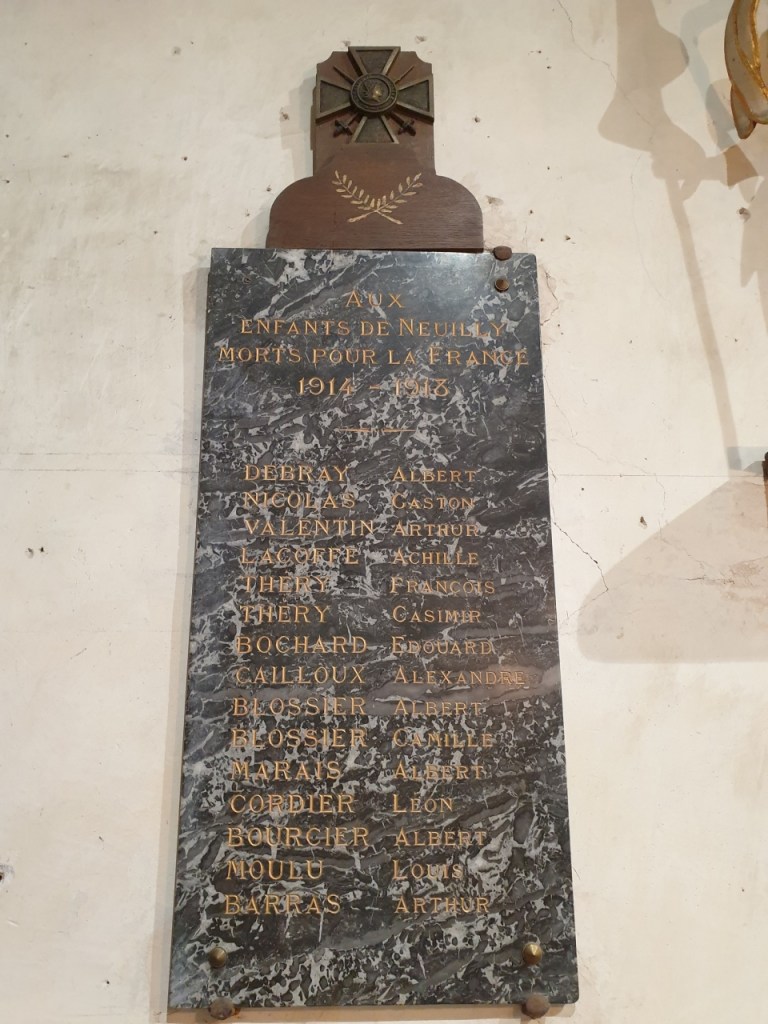 AUX
ENFANTS DE NEUILLY
MORTS POUR LA FRANCE
1914 - 1918
DEBRAY ALBERT
NICOLAS GASTON
VALENTIN ARTHUR
LACOFFE ACHILLE
THÉRY FRANÇOIS
THÉRY CASIMIR
BOCHARD EDOUARD
CAILLOUX ALEXANDRE
BLOSSIER ALBERT
BLOSSIER CAMILLE
MARAIS ALBERT
CORDIER LÉON
BOURCIER ALBERT
MOULU LOUIS
BARRAS ARTHUR